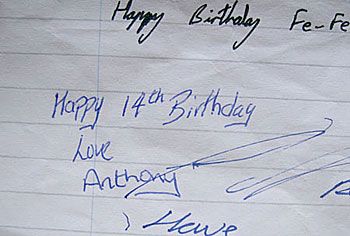 Happy Birthday Fe-Fe
Happy 14th Birthday
Love
Anthony
Howe